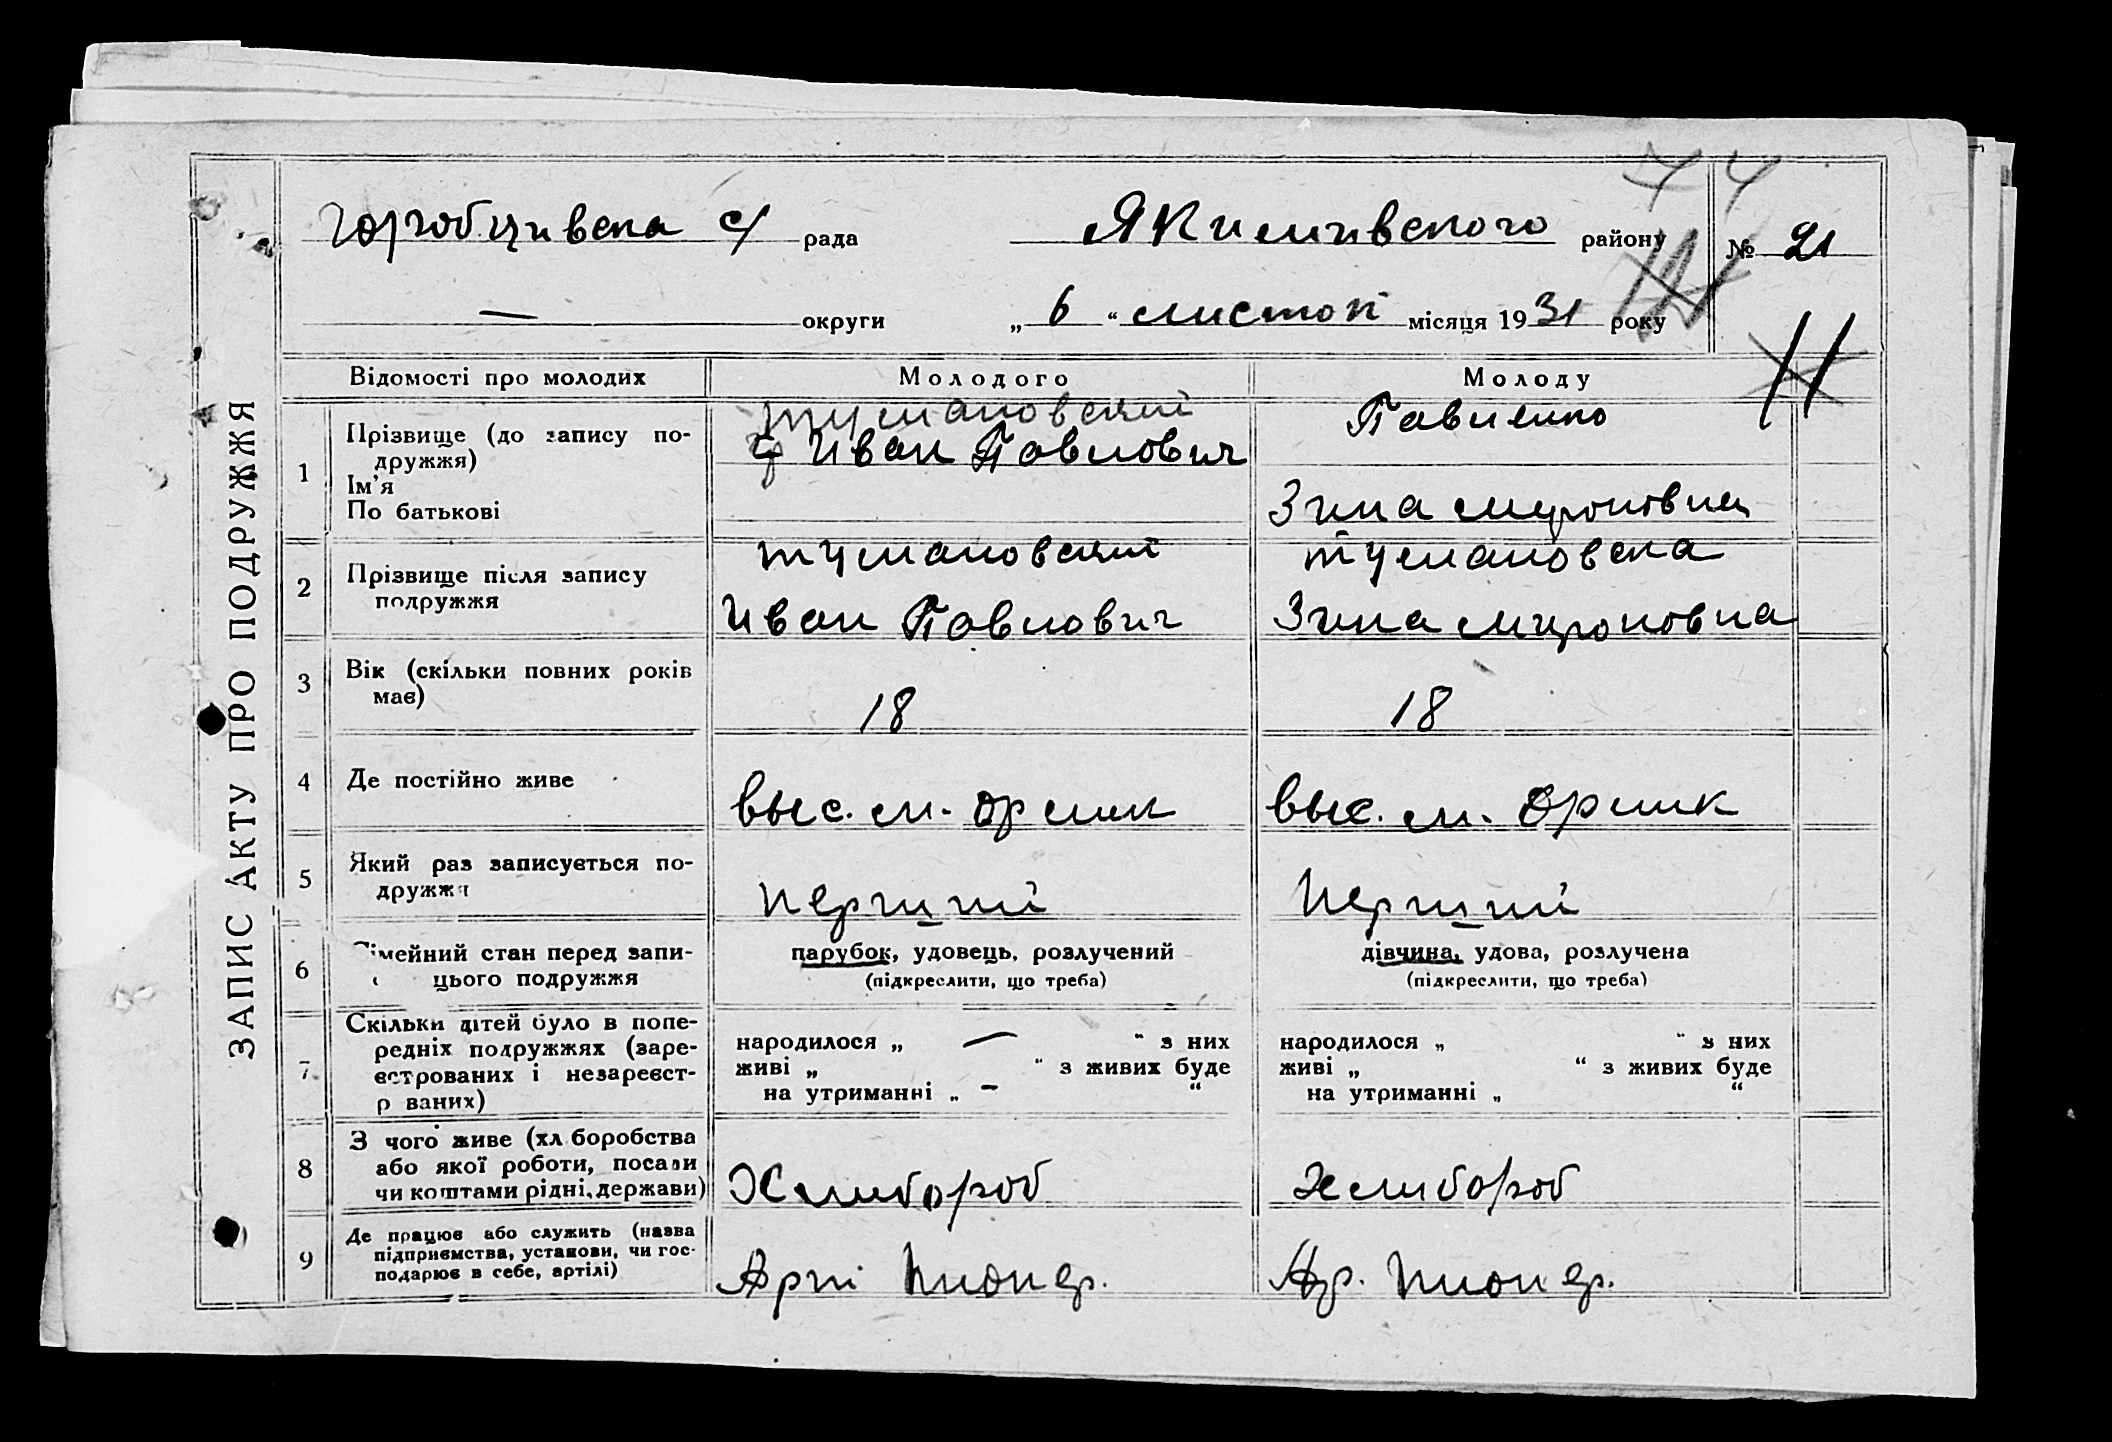 ЗАПИС АКТУ ПРО ПОДРУЖЖЯ
Горобцивска с/ рада
Якимивского району
№ 21
— округи
„ 6 “ листоп місяця 1931 року
11
Відомості про молодих
Молодого
Молоду
1
Прізвище (до запису по-
дружжя)
Ім’я
По батькові
Тумановский
Иван Павлович
Павленко
Зина Мироновна
2
Прізвище після запису
подружжя
Тумановский
Иван Павлович
Тумановска
Зина Мироновна
3
Вік (скільки повних років
має)
18
18
4
Де постійно живе
выс. м. Орлик
выс. м. Орлик
5
Який раз записується по-
дружжя
Перший
Перший
6
Сімейний стан перед запи-
цього подружжя
парубок, удовець, розлучений
(підкреслити, що треба)
дівчина, удова, розлучена
(підкреслити, що треба)
7
Скільки дітей було в попе-
редніх подружжях (заре-
єстрованих і незареєст-
р ваних)
народилося „ — “ з них
живі „ “ з живих буде
на утриманні „ - “
народилося „ “ з них
живі „ “ з живих буде
на утриманні „ “
8
З чого живе (хл боробства
або якої роботи, посади
чи коштами рідні, держави)
Хлибороб
Хлибороб
9
Де працює або служить (назва
підприємства, установи, чи гос-
подарює в себе, артілі)
Арті Пионер.
Ар. Пионер.